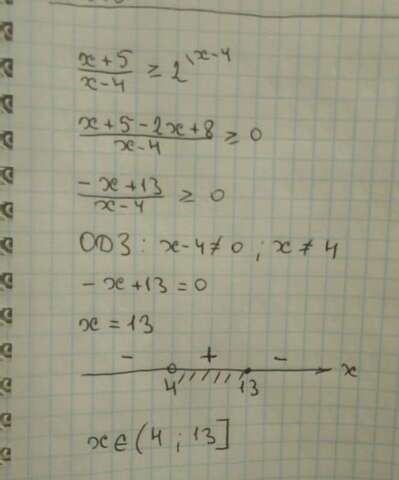 (x+5)/(x-4) ≥ 2^(x-4
(x+5-2x+8)/(x-4) ≥ 0
(-x+13)/(x-4) ≥ 0
ОДЗ: x-4≠0; x≠4
-x+13=0
x=13
- + -
4 13 x
x∈(4; 13]